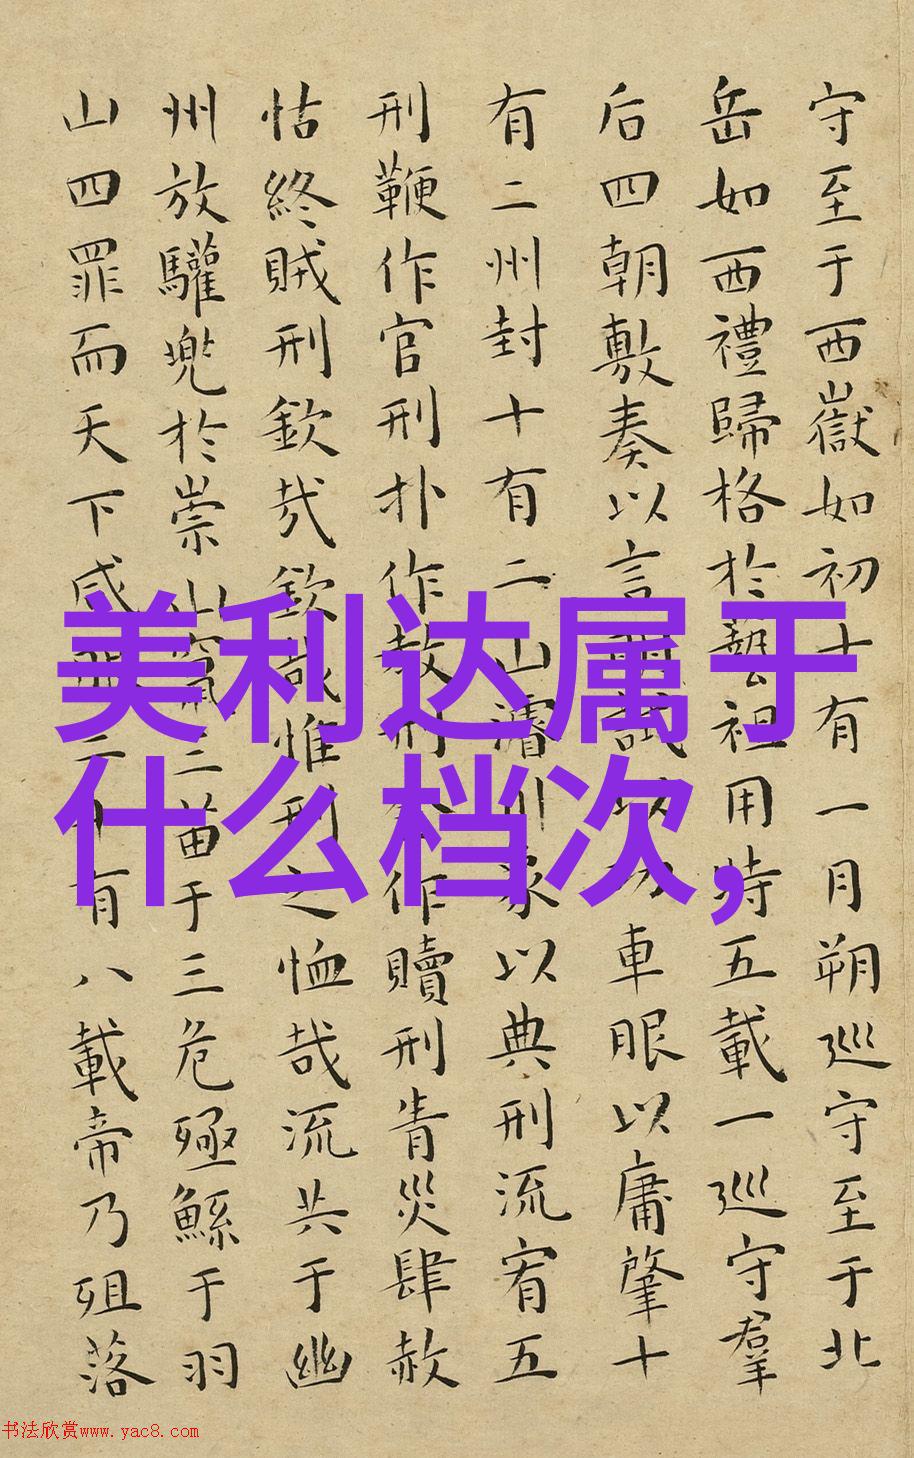 守至于西嶽如初十有一月朔巡守至于北
岳如西禮歸格於藝祖用特五載一巡守羣
后四朝敷奏以言明試以功車眼以庸肇十
有二州封十有二山濬川象以典刑流宥五
刑鞭作官刑扑作教刑金作贖刑眚災肆赦
怙終賊刑欽哉欽哉惟刑之恤哉流共于幽
州放驩兜於崇山竄三苗于三危殛鯀于羽
山四罪而天下咸服二十有八載帝乃殂落
美利达属于
什么档次,
书法欣赏www.yac8.com